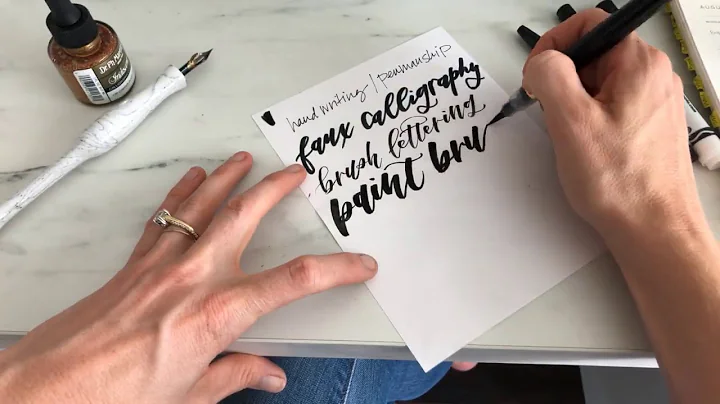 handwriting/penmanship
faux calligraphy
brush lettering
paint bru